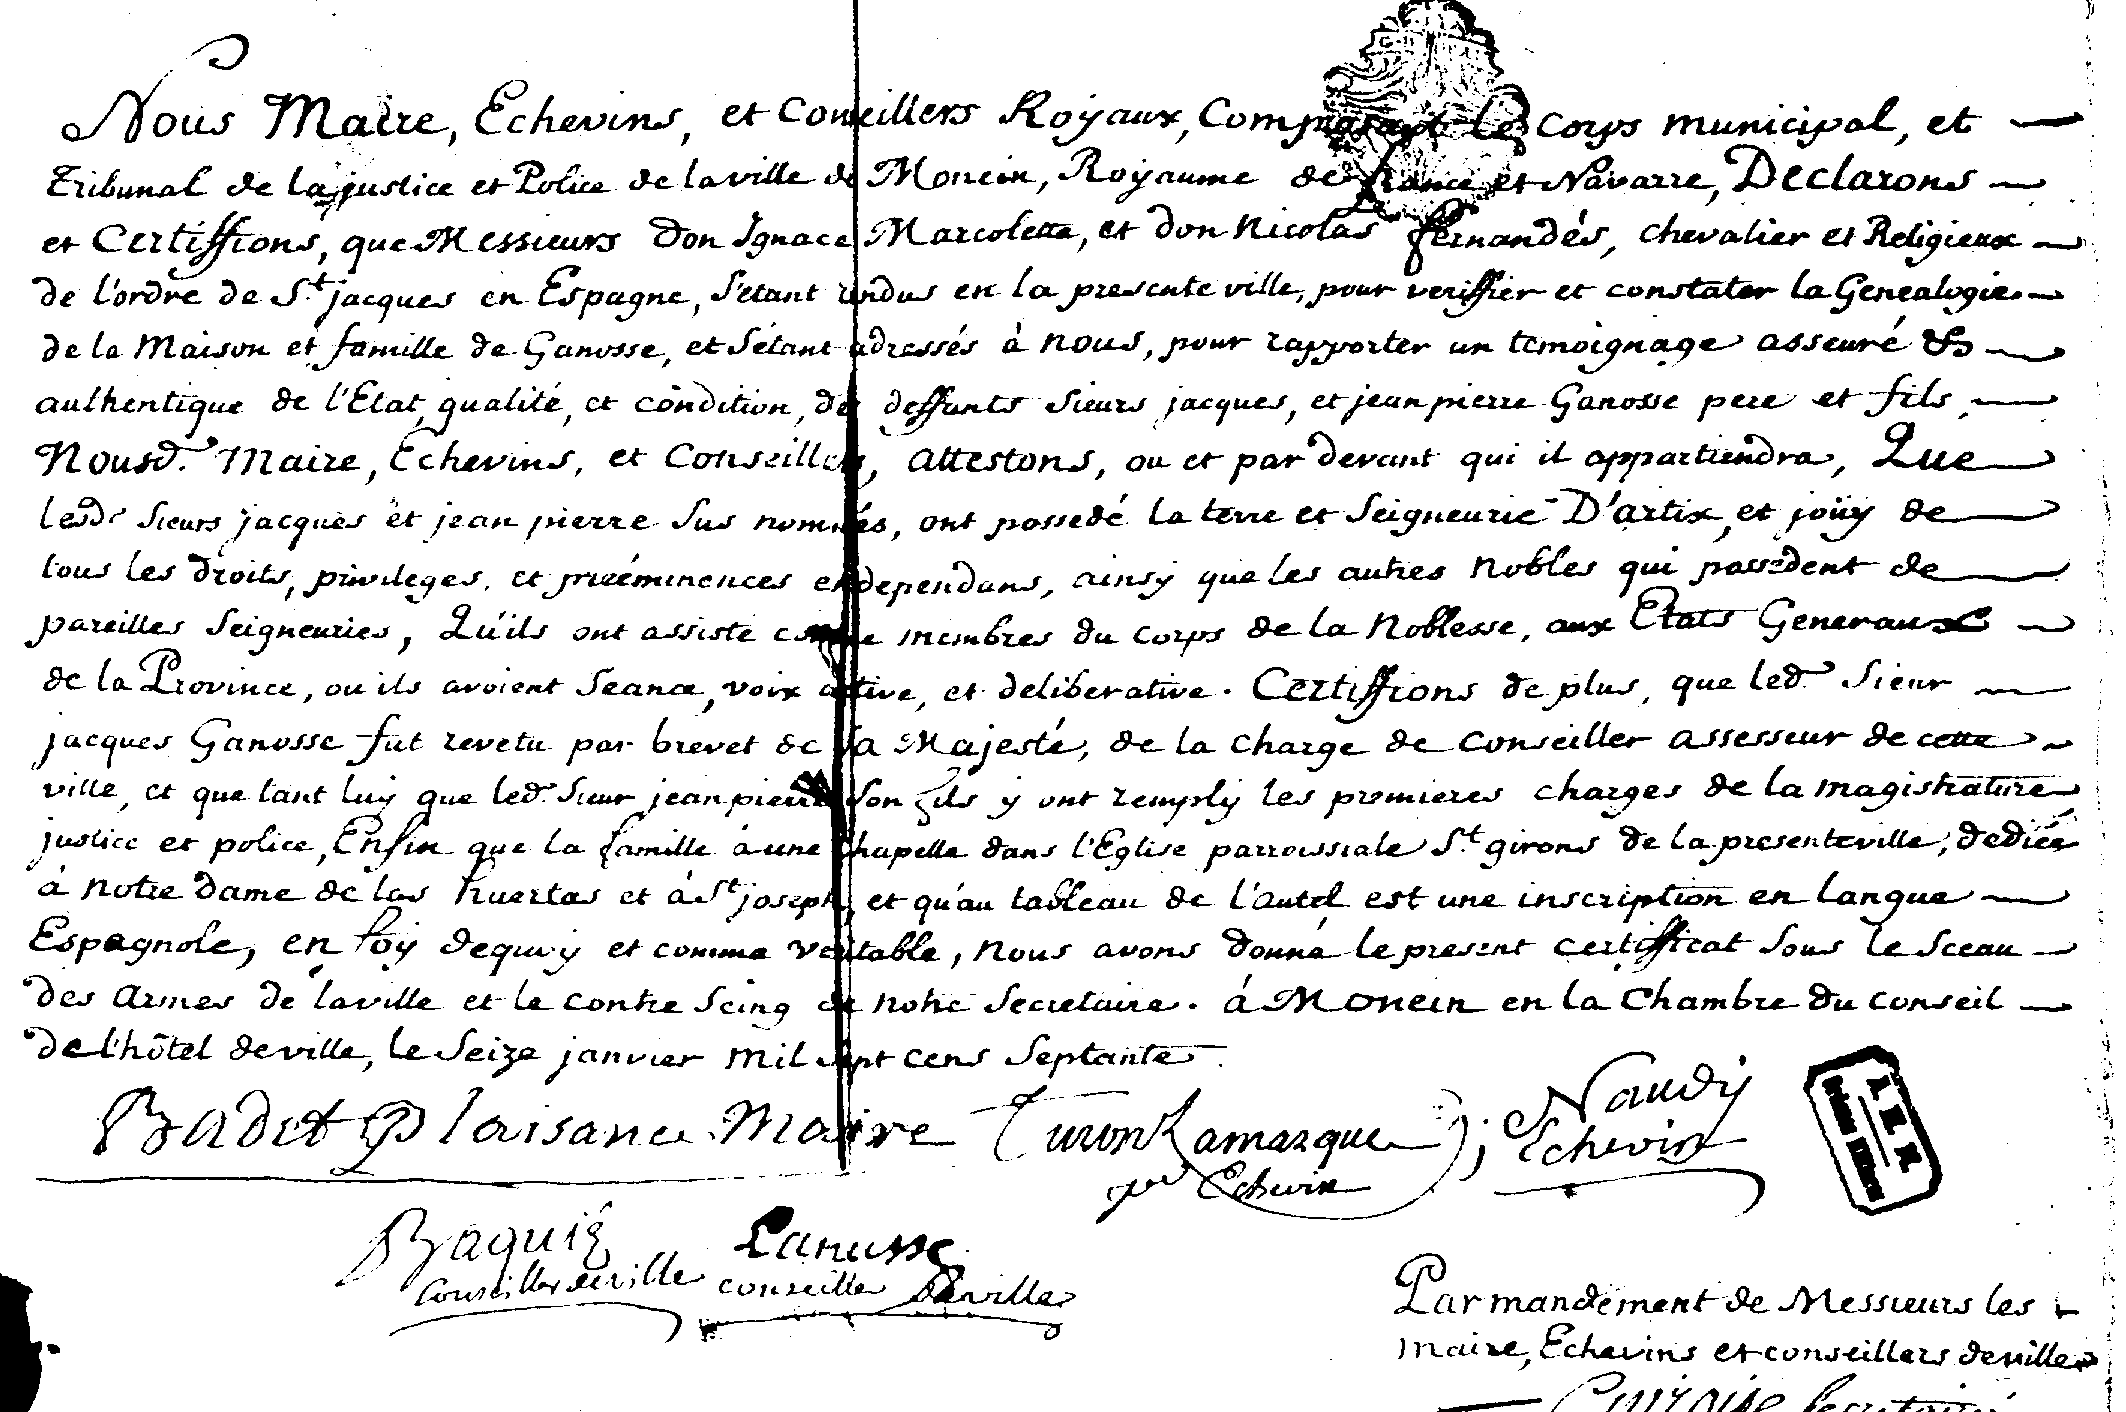 Nous Maire, Echevins, et Conseillers Royaux, Composant le Corps municipal, et
Tribunal de la justice et Police de la ville de Monein, Royaume de france et Navarre, Declarons
et Certiffions, que Messieurs Don Ignace Marcoleta, et don Nicolas fernandés, chevalier et Religieux
de l'ordre de St. jacques en Espagne, s'etant rendus en la presente ville, pour veriffier et constater la Genealogie
de la Maison et famille de Ganosse, et s'étant adressés à nous, pour rapporter un temoignage asseuré &
authentique de l'Etat, qualité, et condition, des deffunts sieurs jacques, et jean pierre Ganosse pere et fils,
Nousd. Maire, Echevins, et Conseillers, attestons, ou et par devant qui il appartiendra, Que
lesd. sieurs jacques et jean pierre sus nommés, ont possedé la terre et seigneurie D'artix, et joüy de
tous les droits, privileges, et prééminences en dependans, ainsy que les autres nobles qui possedent de
pareilles seigneuries, Qu'ils ont assisté comme membres du corps de la noblesse, aux Etats Generaux
de la Province, ou ils avoient seance, voix active, et deliberative. Certiffions de plus, que led. sieur
jacques Ganosse fut revetu par brevet de sa Majesté, de la charge de conseiller assesseur de cette
ville, et que tant luy que led. sieur jean pierre son fils y ont remply les premieres charges de la magistrature
justice et police, Enfin que la famille à une chapelle dans l'Eglise parroissiale St. girons de la presente ville, dediée
à notre dame de las huertas et à St joseph, et qu'au tableau de l'autel est une inscription en langue
Espagnole, en foy dequoy et comme veritable, nous avons donné le present certifficat sous le sceau
des armes de la ville et le contre seing de notre secretaire. à Monein en la Chambre du conseil
de l'hôtel de ville, le seize janvier mil sept cens septante.
Badet Plaisance Maire Turon Lamarque Naudy
Echevin
per Echevin
Baquié Lanusse
conseiller de ville conseiller de ville
A. H. N.
Par mandement de Messieurs les
maire, Echevins et conseillers de ville
secretaire